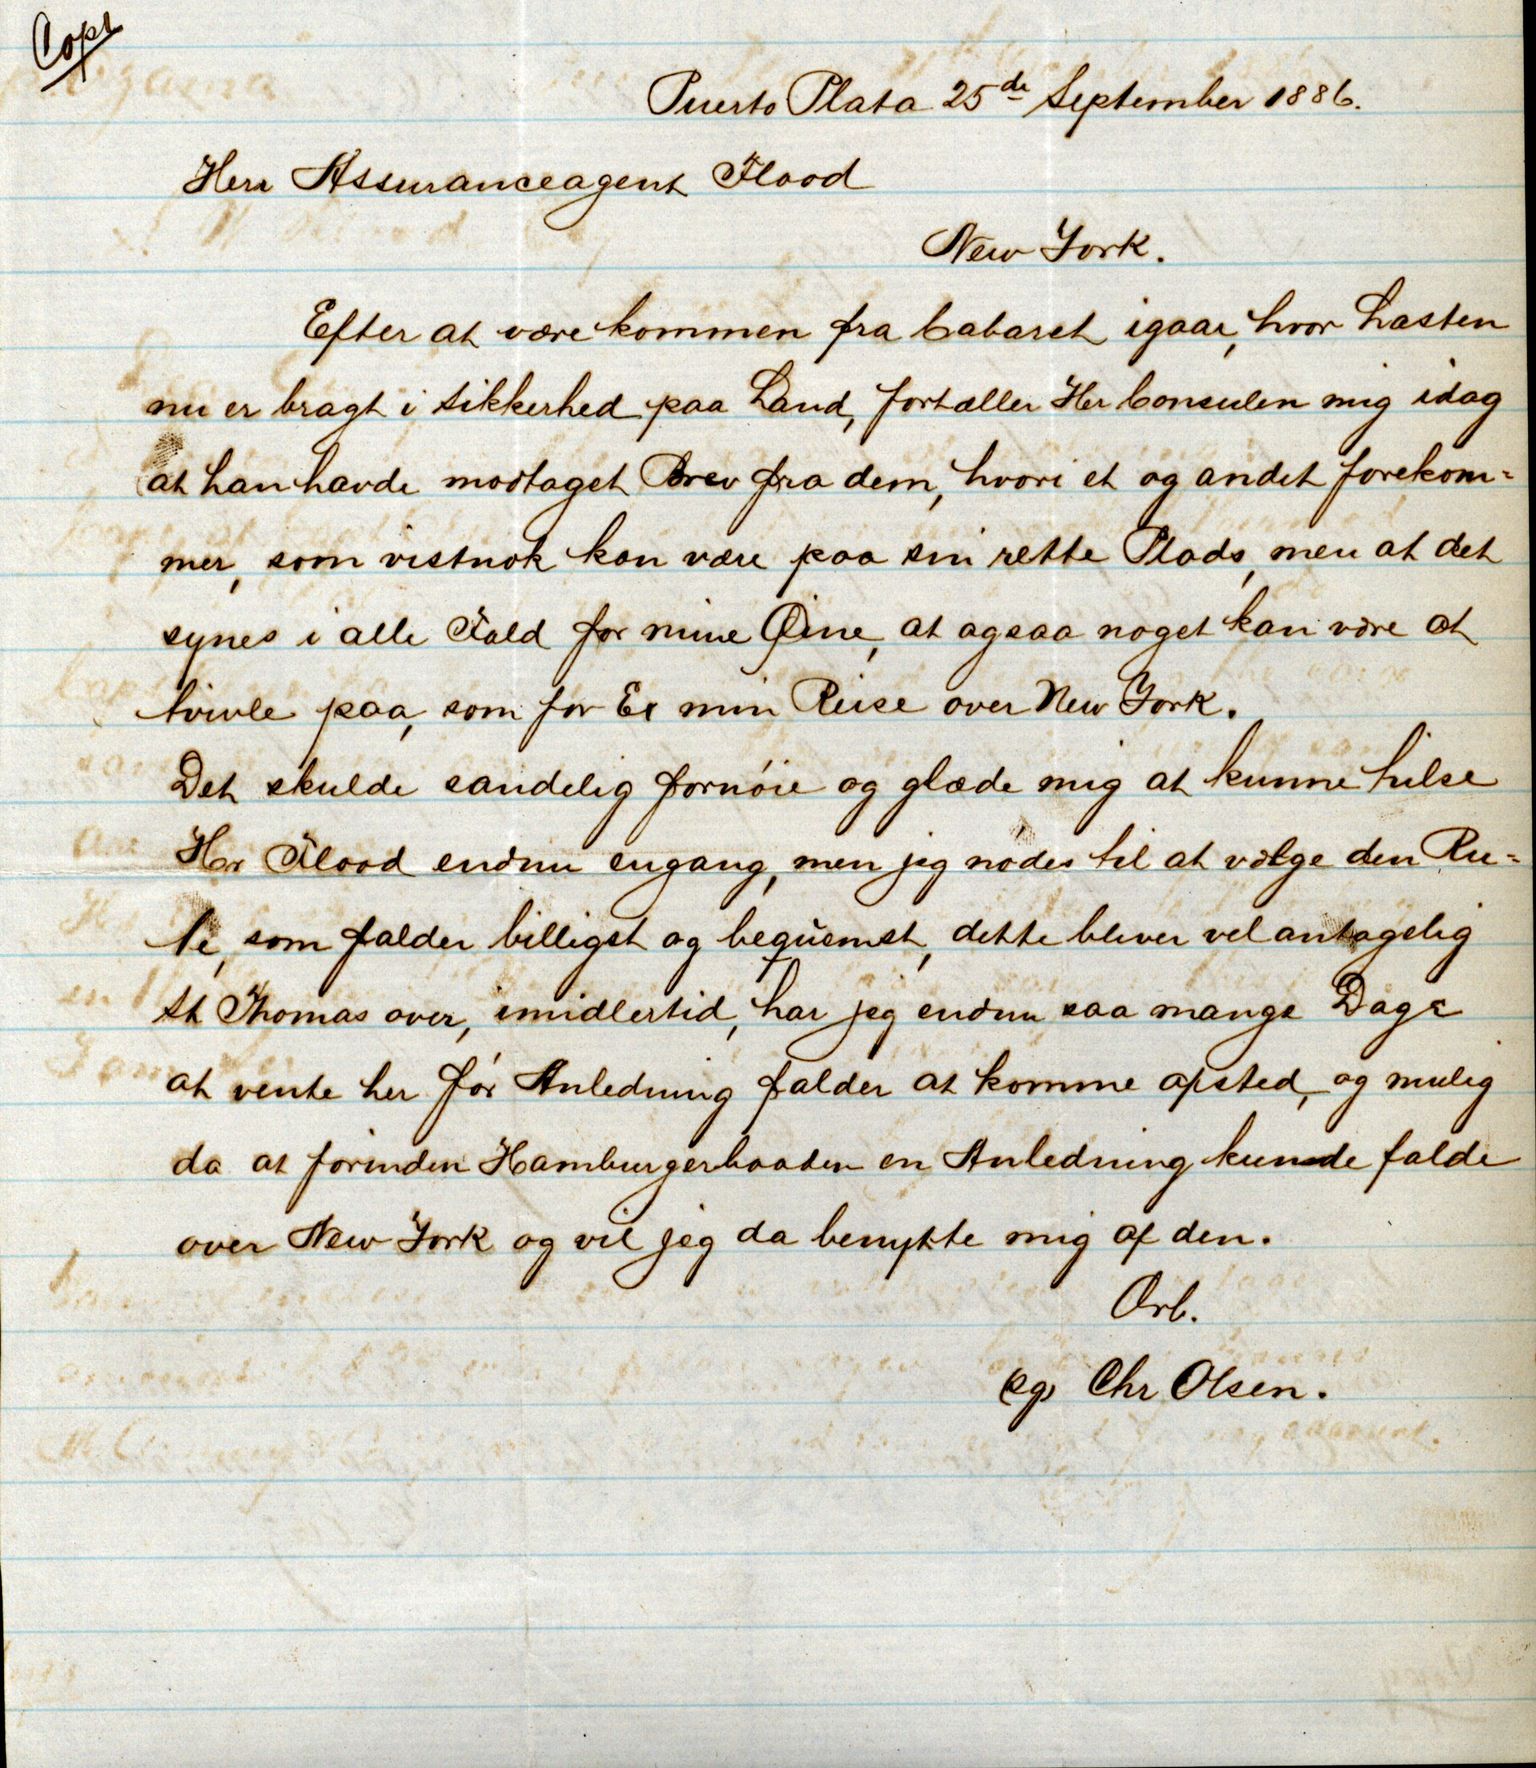 Copi
Puerto Plata 25de September 1886.
Herr Assuranceagent Flood
New York.
Efter at være kommen fra Cabaret igaar, hvor Lasten
nu er bragt i Sikkerhed paa Land, fortæller Her Consulen mig idag
at han havde modtaget Brev fra dem, hvori et og andet forekom=
mer, som vistnok kan være paa sin rette Plads, men at det
synes i alle Fald for mine Øine, at ogsaa noget kan være at
tvivle paa, som for Ex min Reise over New York.
Det skulde sandelig fornøie og glæde mig at kunne hilse
Hr Flood endnu engang, men jeg nødes til at vælge den Ru=
te, som falder billigst og bequemst, dette bliver vel antagelig
St Thomas over, imidlertid, har jeg endnu saa mange Dage
at vente her før Anledning falder at komme afsted, og mulig
da at förinden Hamburgerbaaden en Anledning kunde falde
over New York og vil jeg da benytte mig af den.
Ærb.
(sg) Chr Olsen.